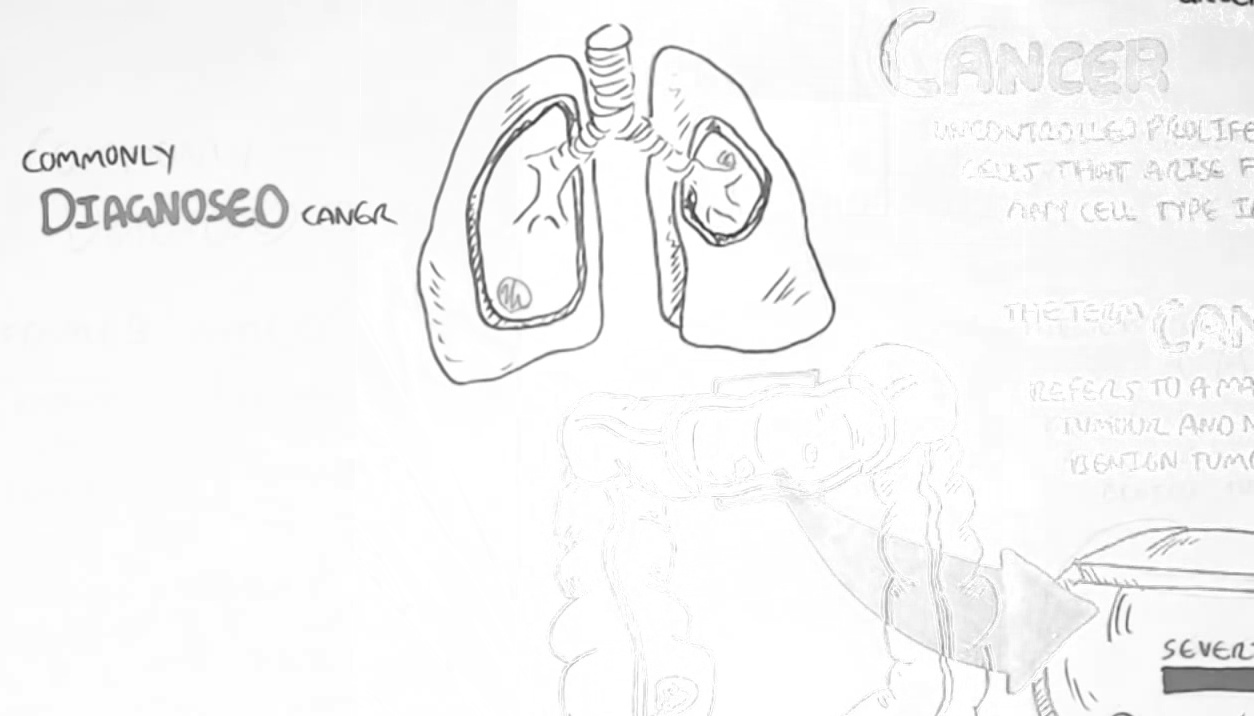 COMMONLY
DIAGNOSED CANER
CANCER
UNCONTROLLED PROLIFE
CELLS THAT ARISE F
ANY CELL TYPE I
THE TERM CAN
REFERS TO A MA
TUMOUR AND N
BENIGN TUMO
SEVER